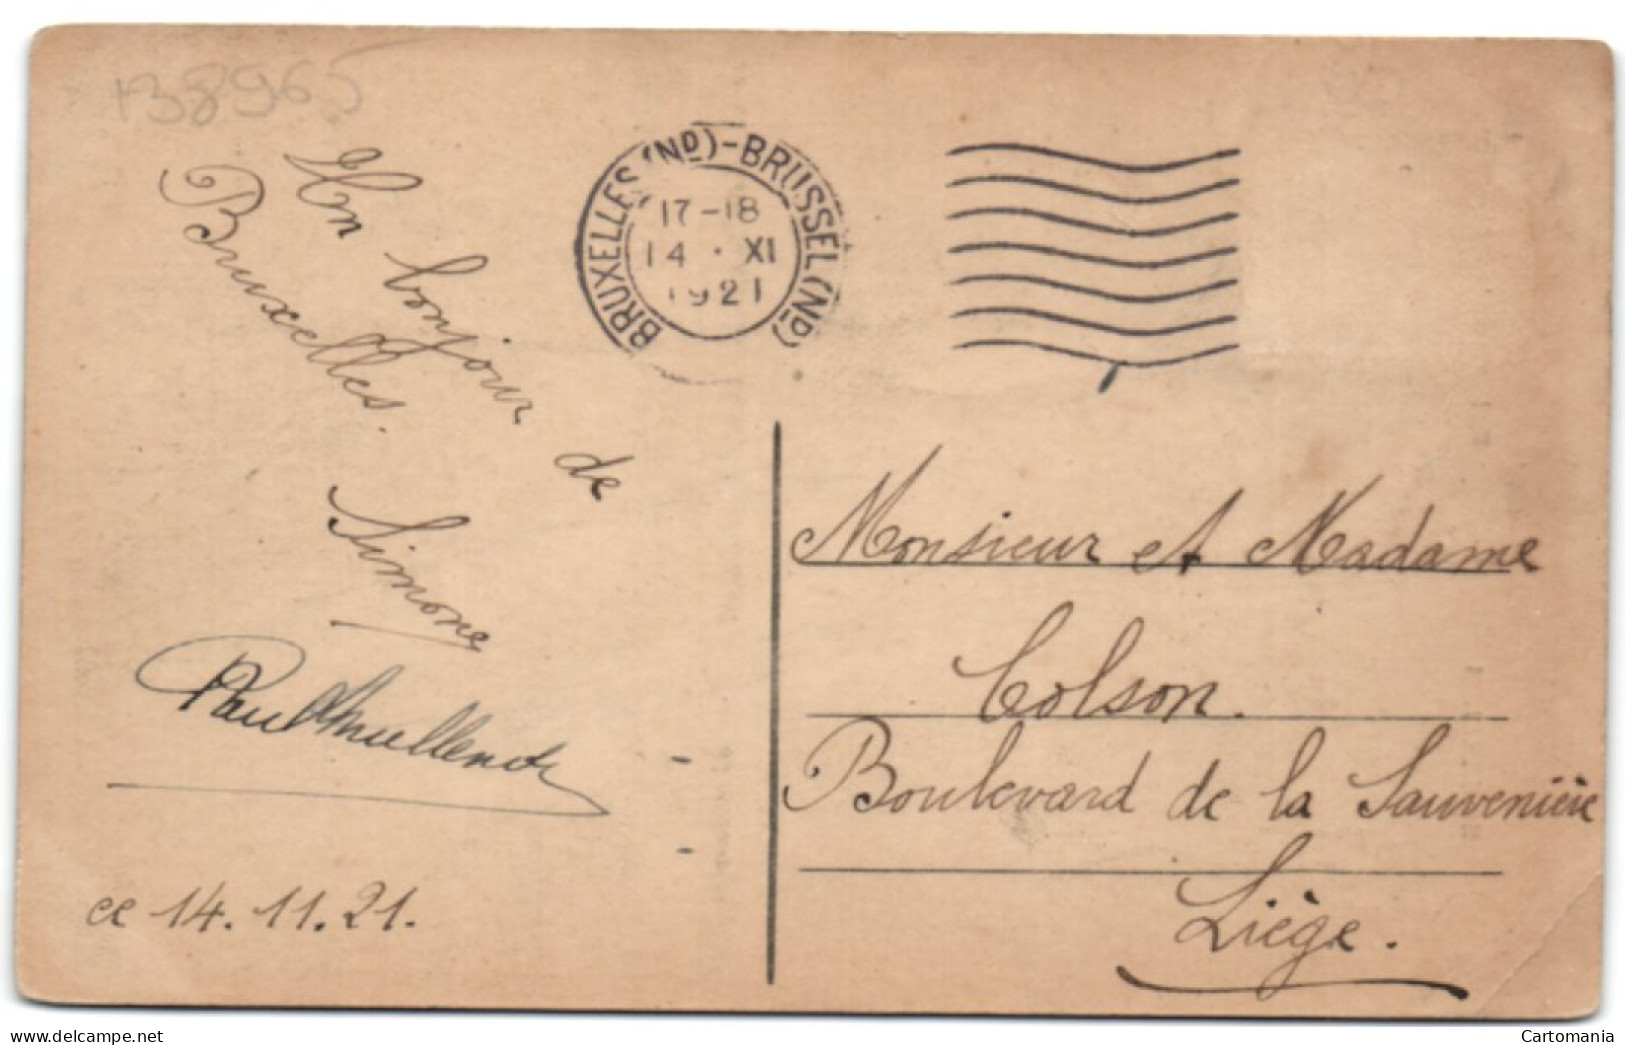 138965
Un bonjour de
Bruxelles.
Simone
Paul
ce 14.11.21.
BRUXELLES (ND)-BRUSSEL (ND)
17-18
14 · XI
1921
Monsieur et Madame
Colson.
Boulevard de la Sauvenière
Liège.
delcampe.net
Cartomania